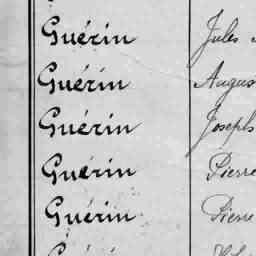 Guérin Jules
Guérin Augus
Guérin Joseph
Guérin Pierre
Guérin Pierre